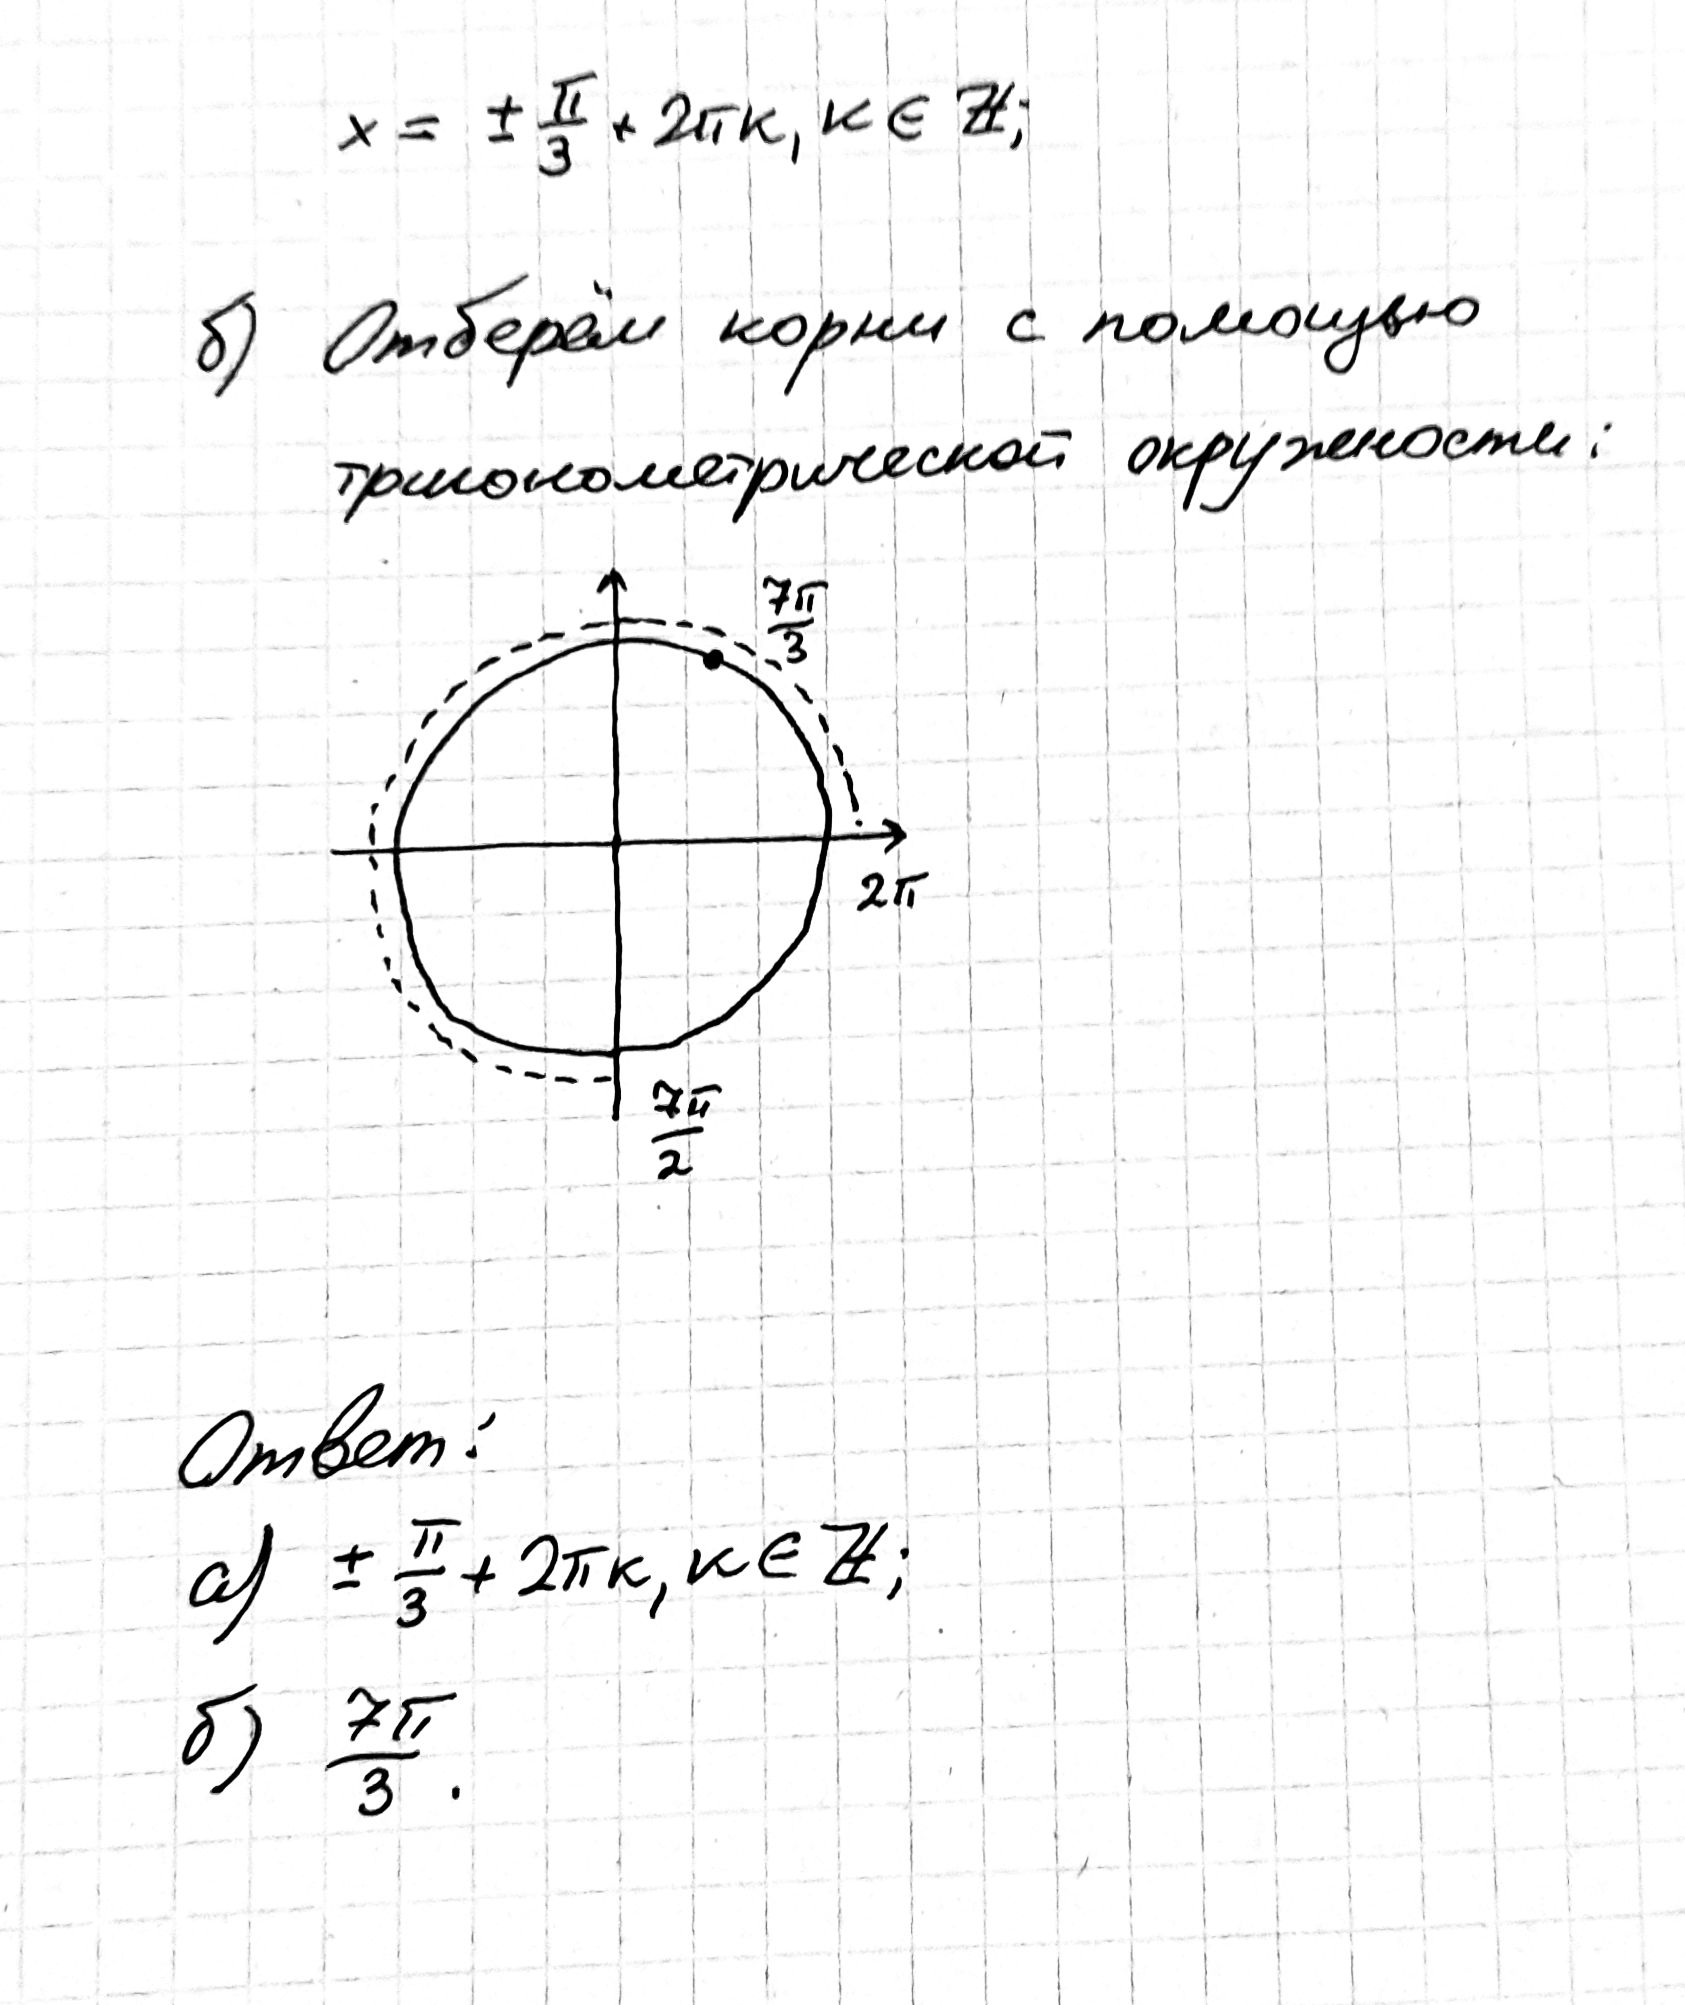 x = ± π/3 + 2πк, к ∈ ℤ;
б) Отберём корни с помощью
тригонометрической окружности:
7π/3
2π
7π/2
Ответ:
а) ± π/3 + 2πк, к ∈ ℤ;
б) 7π/3.